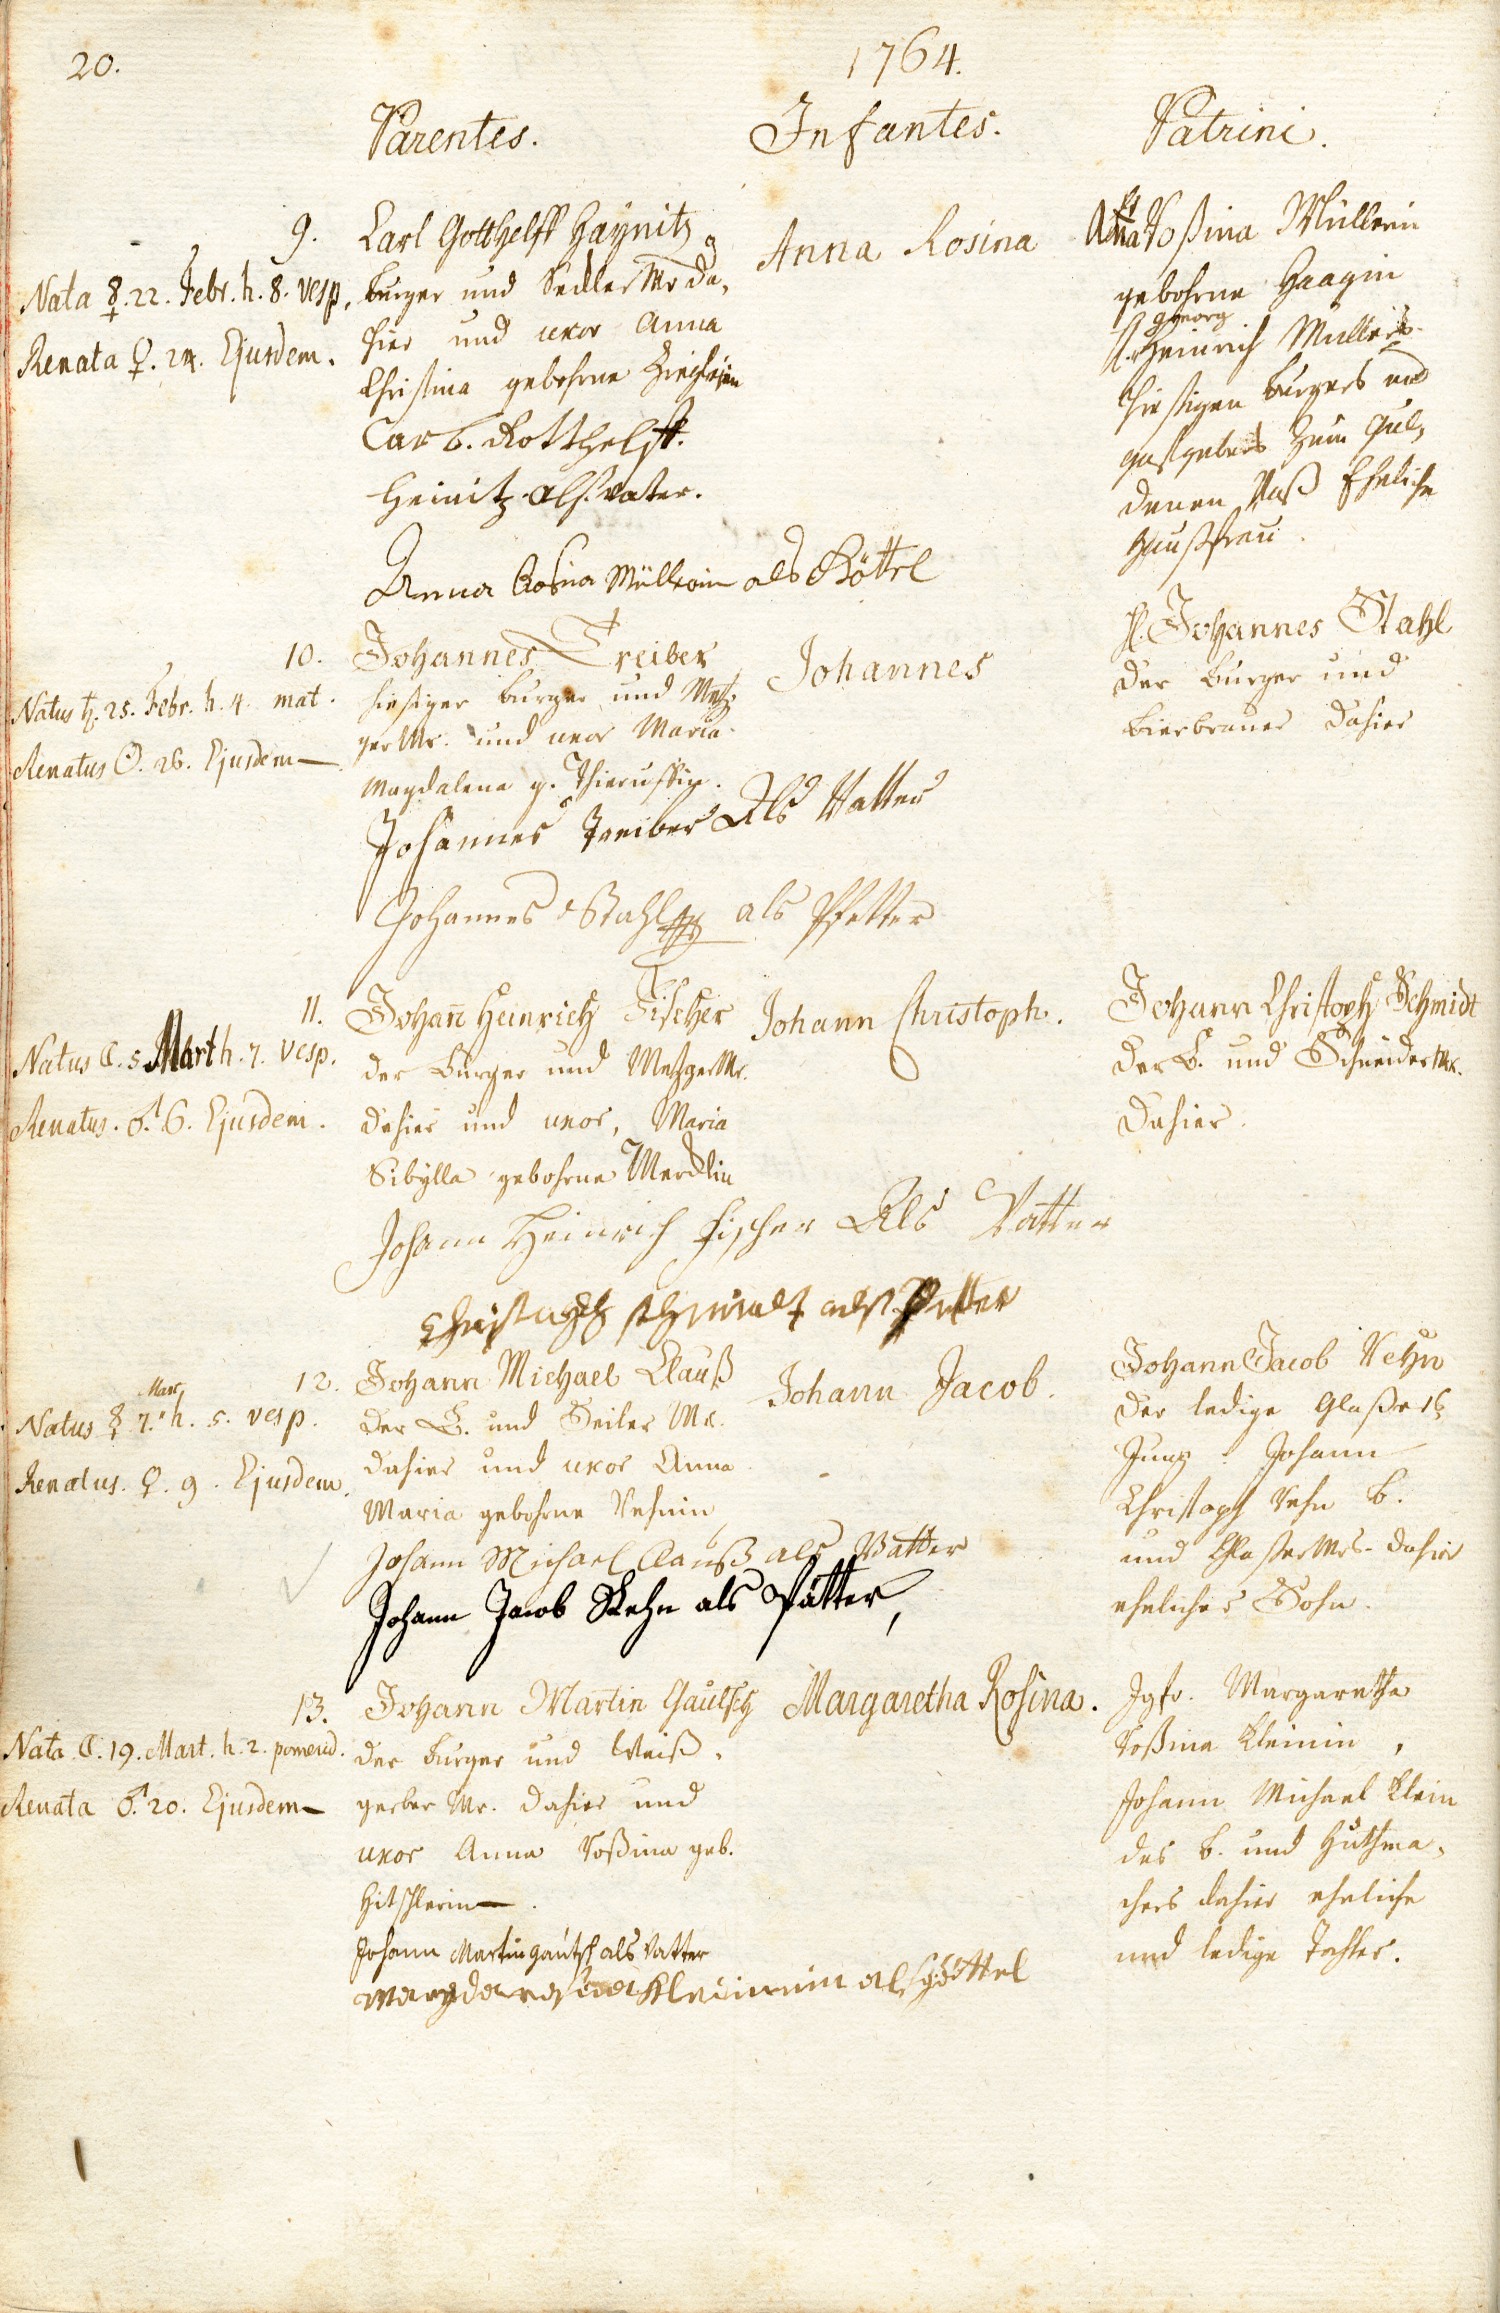 20.
1764.
Parentes.
Infantes.
Patrini.
9.
Nata ☿. 22. Febr. h. 8. vesp.
Renata ♀. 24. Ejusdem.
Carl Gotthelff Haynitz
burger und Sedler Mr da,
hier und uxor Anna
Christina gebohrne
Carl. Gotthelff.
Heinitz als vater.
Anna Rosina Müllerin als Göttel
Anna Rosina
Anna Roßina Müllerin
gebohrne Haagin
Georg
H. Heinrich Müllers
hiesigen burgers und
gastgebers zum gul,
denen Faß Eheliche
Haußfrau.
10.
Natus ♄. 25. Febr. h. 4. mat.
Renatus ☉. 26. Ejusdem
Johannes Treiber
hiesiger burger und Metz,
ger Mr. und uxor Maria
Magdalena g.
Johannes Treiber Als Vatter
Johannes Stahl als Pfetter
Johannes
H. Johannes Stahl
der burger und
bierbrauer dahier
11.
Natus ☾. 5 Mart h. 7. vesp.
Renatus. ♂. 6. Ejusdem.
Johan̄ Heinrich Fischer
der burger und Metzger Mr.
dahier und uxor, Maria
Sibÿlla gebohrne Mercklin
Johann Heinrich Fischer Als Vatter
Christoph Schmidt als Petter
Johann Christoph.
Johann Christoph Schmidt
der B. und Schneider Mr.
dahier.
12.
Mart,
Natus ☿ 7. h. 5. vesp.
Renatus. ♀. 9. Ejusdem.
Johann Michael Clauß
der B. und Seiler Mr.
dahier und uxor Anna
Maria gebohrne Vehnin
Johann Michael Clauß als Vatter
Johann Jacob Vehn als Pätter,
Johann Jacob.
Johann Jacob Vehn
der ledige Glaßers
Johann
Christoph Vehn b.
und Glaßer Mrs. dahier
ehelicher Sohn.
13.
Nata ☾. 19. Mart. h. 2. pomerid.
Renata ♂. 20. Ejusdem
Johann Martin Gautsch
der burger und Weiß,
gerber Mr. dahier und
uxor Anna Roßina geb.
Hitschlerin.
Johann Martin gautsch als Vatter
Kleinin als göttel
Margaretha Rosina.
Jgfr. Margaretha
Roßina Kleinin,
Johann Michael Klein
des b. und Huthma,
chers dahier eheliche
und ledige Tochter.